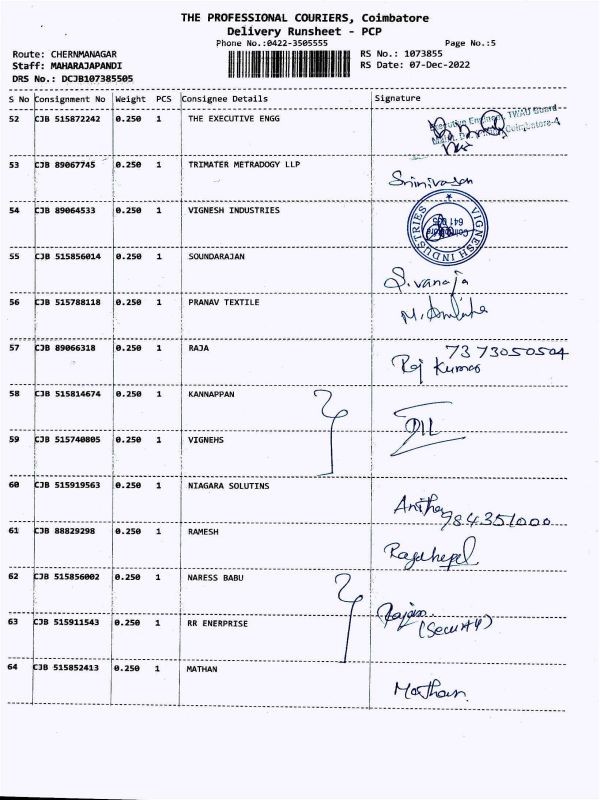 THE PROFESSIONAL COURIERS, Coimbatore
Delivery Runsheet - PCP
Phone No.:0422-3505555 Page No.:5
Route: CHERNMANAGAR RS No.: 1073855
Staff: MAHARAJAPANDI RS Date: 07-Dec-2022
DRS No.: DCJB107385505
S No Consignment No Weight PCS Consignee Details Signature
52 CJB 515872242 0.250 1 THE EXECUTIVE ENGG
Executive Engineer, TWAD Board
Coimbatore-4
53 CJB 89067745 0.250 1 TRIMATER METRADOGY LLP
Srinivasan
54 CJB 89064533 0.250 1 VIGNESH INDUSTRIES
VIGNESH INDUSTRIES
Coimbatore
55 CJB 515856014 0.250 1 SOUNDARAJAN
S.vanaja
56 CJB 515788118 0.250 1 PRANAV TEXTILE
57 CJB 89066318 0.250 1 RAJA
7373050504
Raj Kumar
58 CJB 515814674 0.250 1 KANNAPPAN
59 CJB 515740805 0.250 1 VIGNEHS
60 CJB 515919563 0.250 1 NIAGARA SOLUTINS
984351000
61 CJB 88829298 0.250 1 RAMESH
62 CJB 515856002 0.250 1 NARESS BABU
63 CJB 515911543 0.250 1 RR ENERPRISE
(Security)
64 CJB 515852413 0.250 1 MATHAN
Mathan